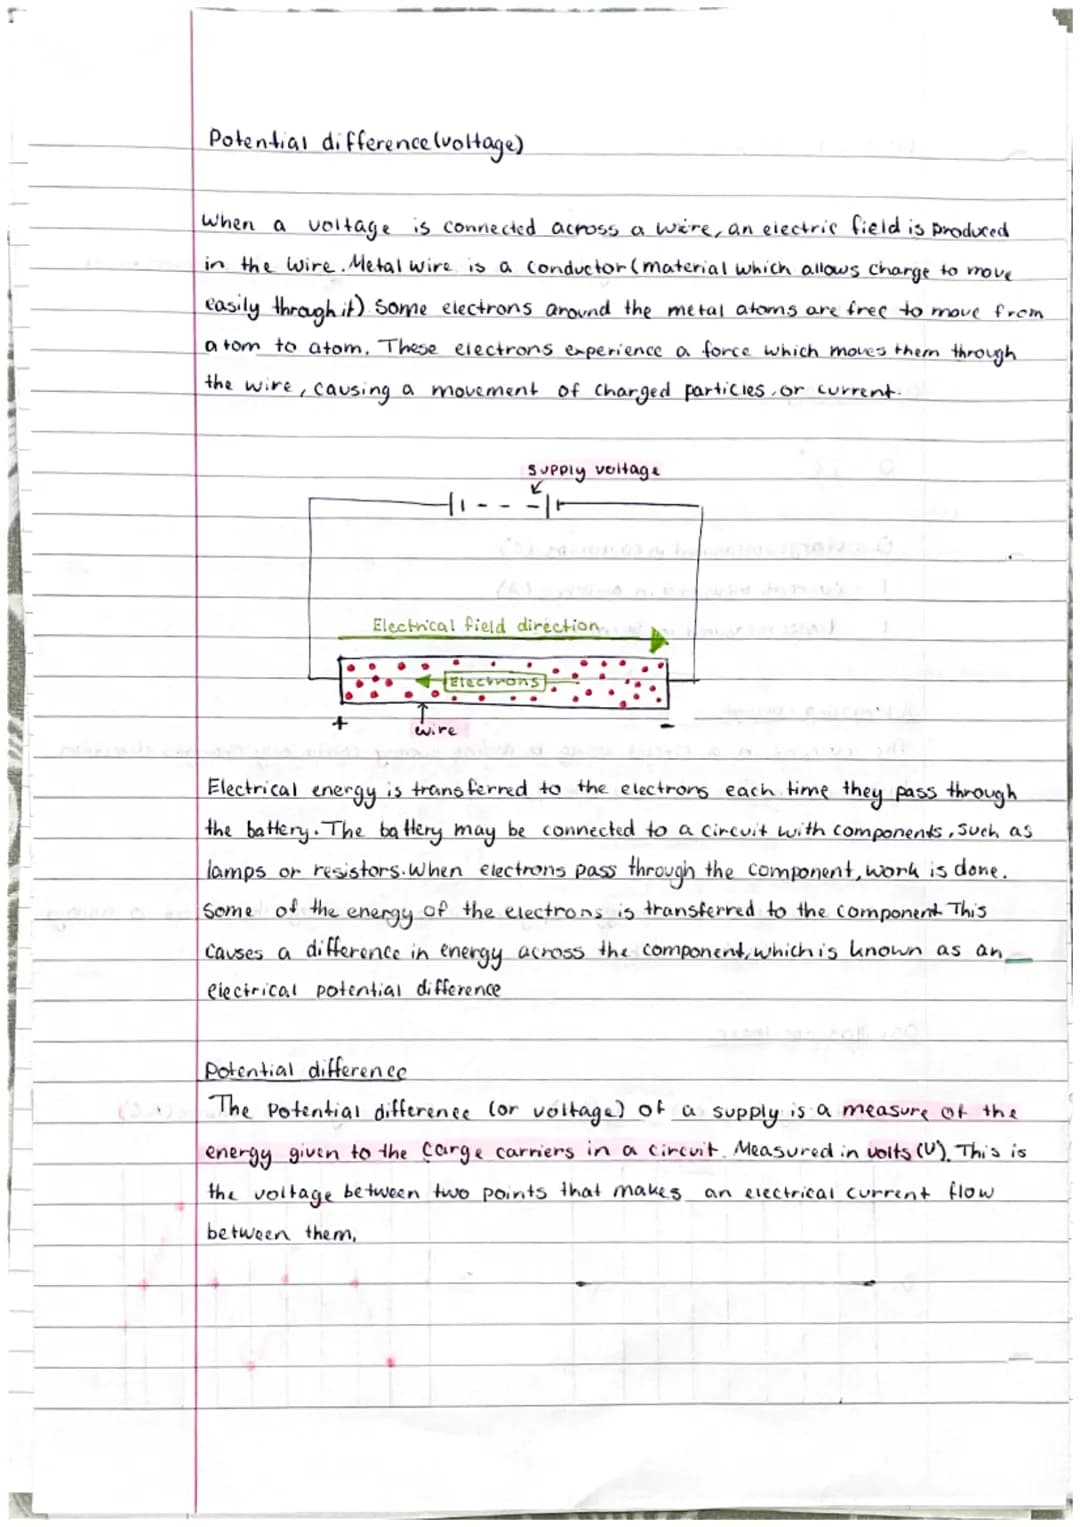 Potential difference (voltage)
When a voltage is connected across a wire, an electric field is produced
in the wire. Metal wire is a conductor (material which allows charge to move
easily through it) Some electrons around the metal atoms are free to move from
atom to atom. These electrons experience a force which moves them through
the wire, causing a movement of charged particles, or current.
Supply voltage
Electrical field direction
Electrons
+
-
wire
Electrical energy is transferred to the electrons each time they pass through
the battery. The battery may be connected to a circuit with components, such as
lamps or resistors. When electrons pass through the component, work is done.
Some of the energy of the electrons is transferred to the component This
causes a difference in energy across the component, which is known as an
electrical potential difference
Potential difference
The Potential difference (or voltage) of a supply is a measure of the
energy given to the carge carriers in a circuit. Measured in volts (V). This is
the voltage between two points that makes an electrical current flow
between them,